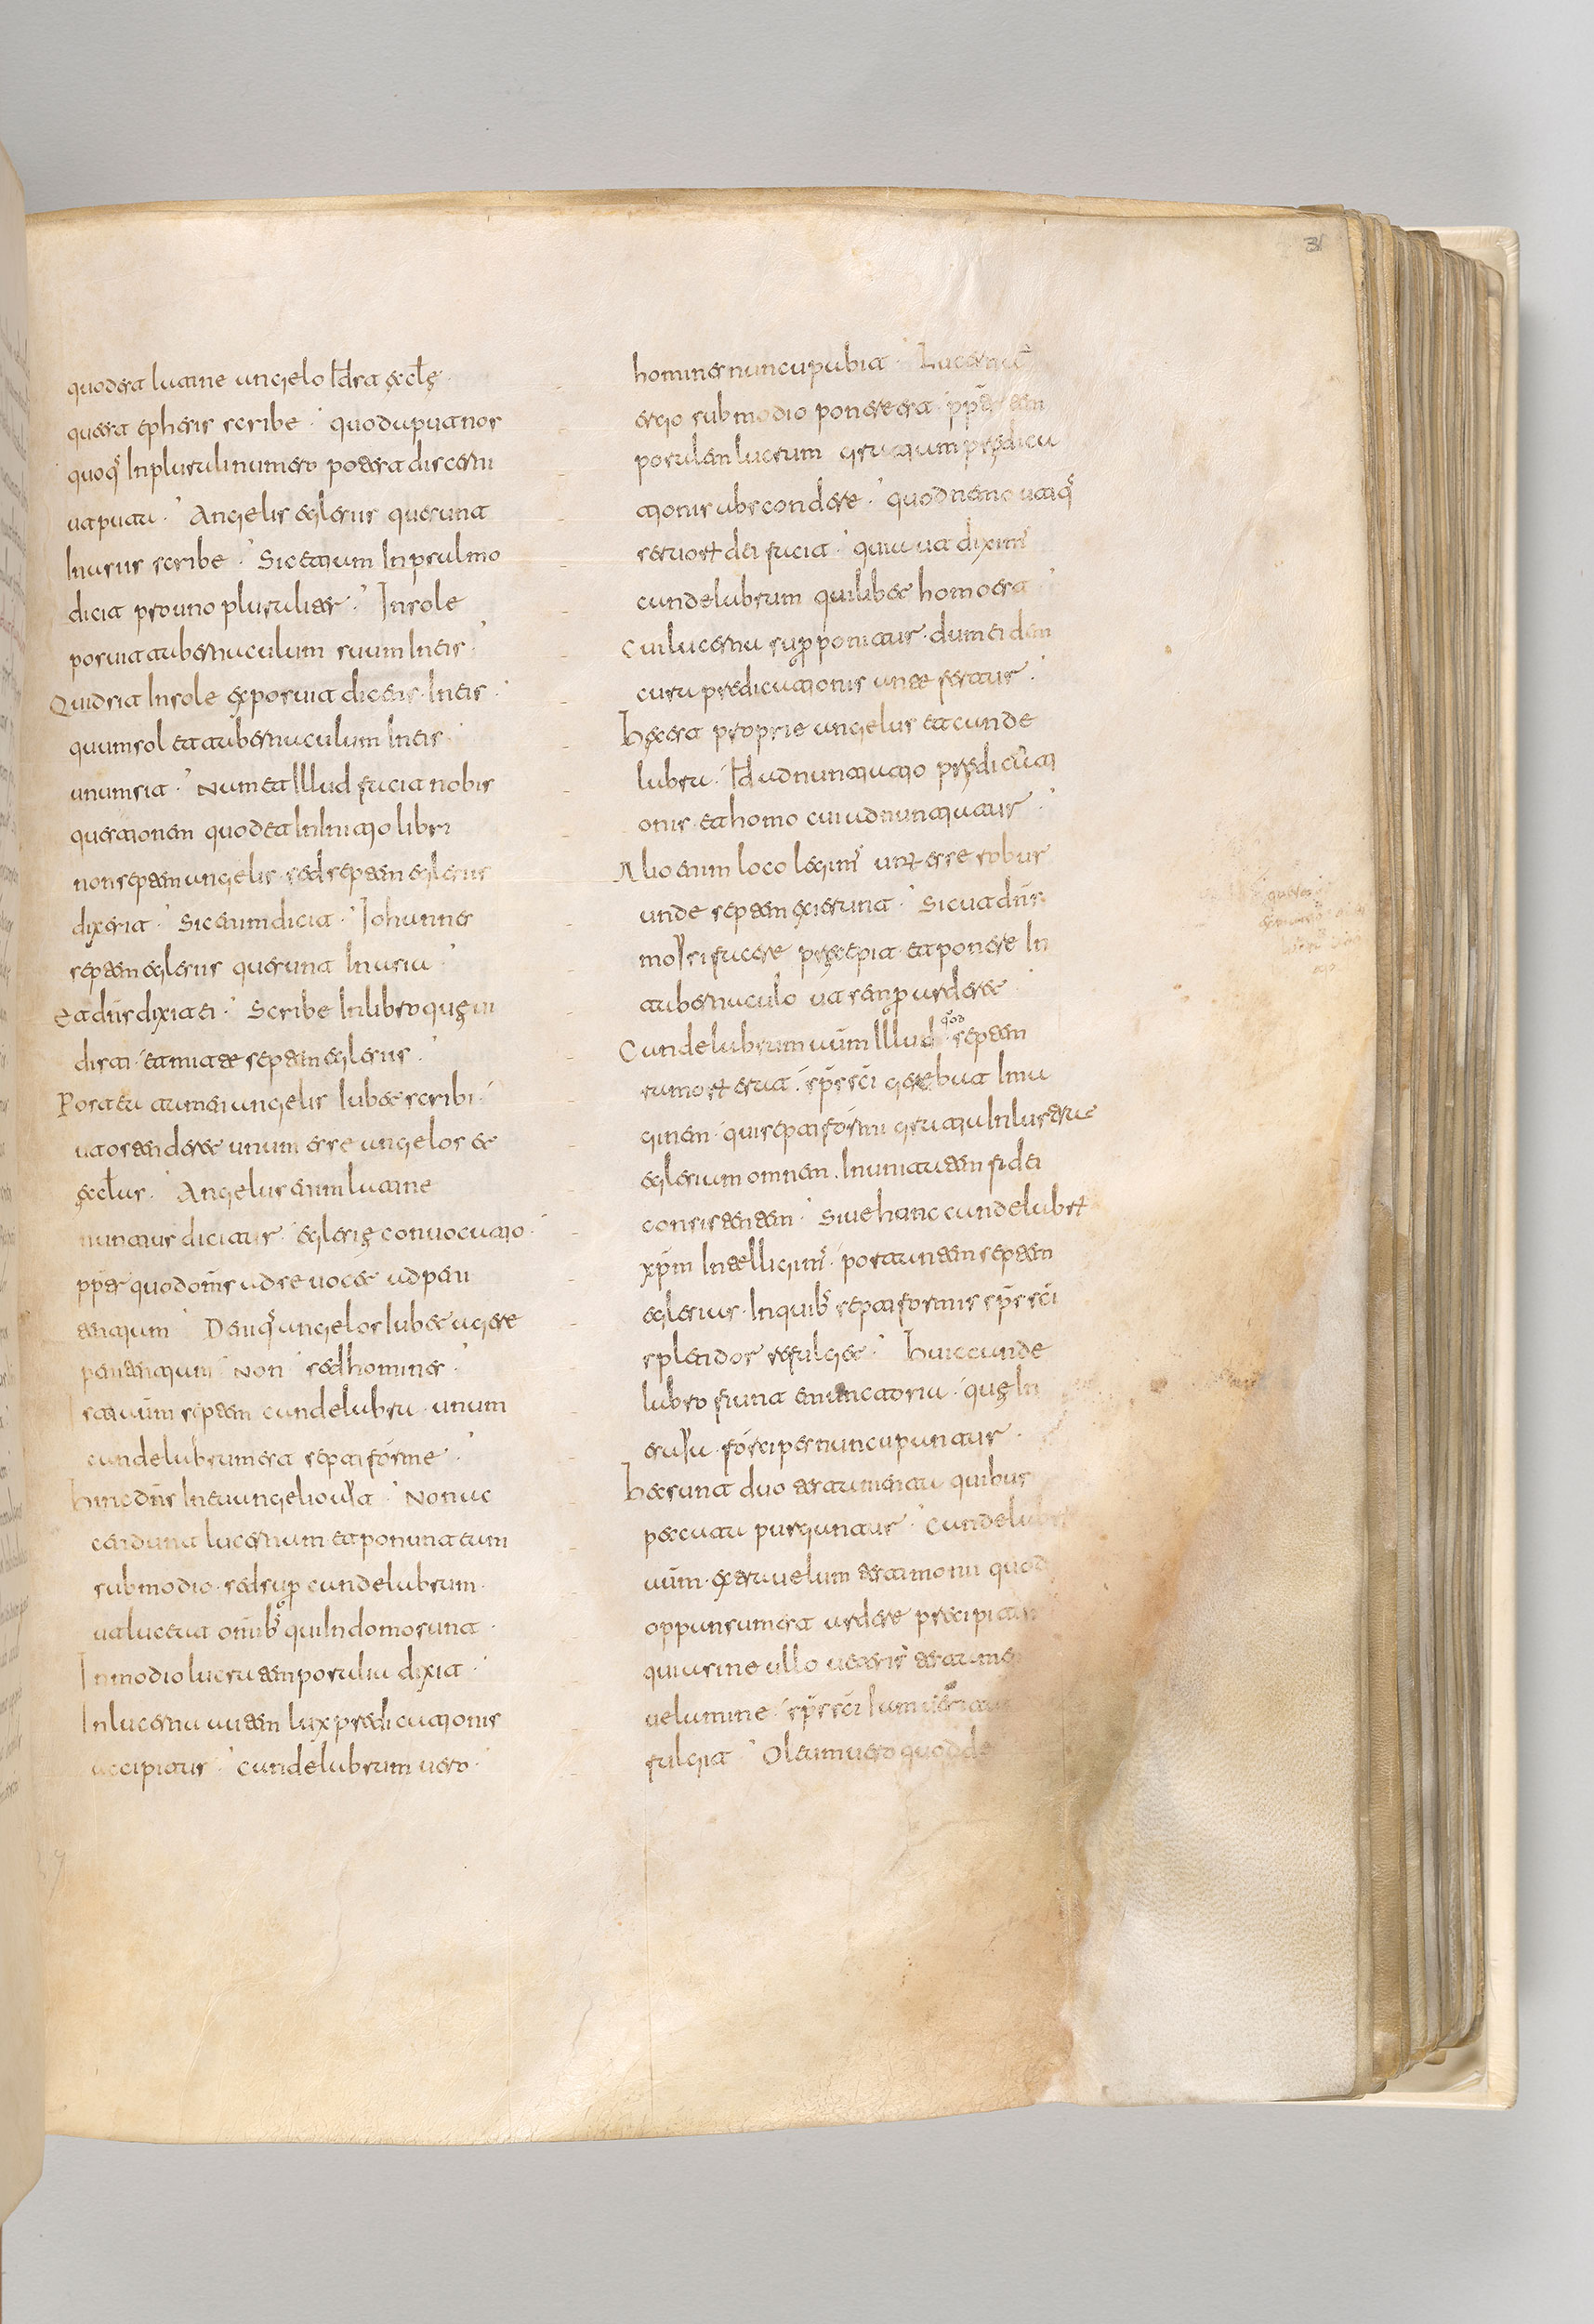 quod est latine angelo Id est ęcl̄sę.
que est ephesis scribe. quod aput nos
quoq; In plurali numero potest discerni
ut puta. Angelis eglesiis que sunt
In asiis scribe. Sic etium In psalmo
dicit pro uno pluraliter. In sole
posuit tabernaculum suum In eis.
Quid sit In sole exposuit dicens. In eis.
quum sol et tabernaculum In eis
unum sit. Nam et Illud facit nobis
questionem quod et In Initio libri
non septem angelis. sed septem eglesiis
dixerit. Sic enim dicit. Iohannes
septem eglesiis que sunt In asia.
Et dn̄s dixit ei. Scribe In libro quę vi
disti. et mitte septem eglesiis.
Postea tamen angelis Iubet scribi.
ut ostenderet unum esse angelos et
ęcl̄as. Angelus enim latine
nuntius dicitur. eglesię convocatio.
pp̄tr quod om̄s ad se vocet ad peni
tentium. Deniq; angelos Iubet agere
penitentium Non sed homines.
septem candelabra. unum
candelabrum est septiforme.
Hinc dn̄s In evangelio ait. Non ac
cendunt lucernam et ponunt eam
sub modio. sed sup̱ candelabrum.
ut luceat omīb; qui In domo sunt.
In modio lucra temporalia dixit.
In lucerna autem lux predicationis
accipitur. candelabrum vero.
homines nuncupabit. Lucernā
ergo sub modio ponere est. pp̄tr tem
poralem lucrum gratium prędica
tionis abscondere. quod nemo utiq;
servorum dei facit. quia ut dixim;
candelabrum quilibet homo est.
Cui lucerna supponitur. dum eidem
cura predicationis ante fertur.
Hęc est proprie angelus et cande
labra. Id adnuntiatio prędicati
onis. et homo cui adnuntiatur.
Alio enim loco legim; unum esse robur
unde septem exierunt. Sicut dn̄s
moysi facere precepit. et ponere In
tabernaculo ut semp̱ arderet
Candelabrum aūm Illud quod septem
ramorum erat. sp̄s sc̄i gerebat Ima
ginem. qui septiformi gratia Inlustrare
eglesium omnem. In unitatem fidei
consistentem. Sive hanc candelabrum
xp̄m Intelligim;. portantem septem
eglesias. In quib; septiformis sp̄s sc̄i
splendor refulget. Huic cande
labro fiunt emunctoria. quę In
esaya. forcipes nuncupantur.
Hec sunt duo testamenta quibus
peccata purguntur. Candelabr
aūm. extra velum testimonii quod
oppansum est ardere precipitur
quia sine ullo veteris testamen
velamine. sp̄s sc̄i
fulgit. Oleum vero quod de